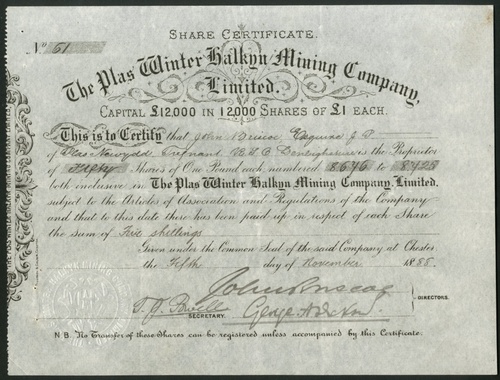 SHARE CERTIFICATE.
No 61
The Plas Winter Halkyn Mining Company,
Limited.
CAPITAL £12000 IN 12000 SHARES OF £1 EACH.
This is to Certify that John Esquire J.P.
of Plas Newydd Trefnant is the Proprietor
of Fifty Shares of One Pound each numbered to
both inclusive in The Plas Winter Halkyn Mining Company, Limited,
subject to the Articles of Association and Regulations of the Company
and that to this date there has been paid up in respect of each Share
the sum of Five shillings
Given under the Common Seal of the said Company at Chester
the Fifth day of November 1888.
DIRECTORS.
SECRETARY.
N B. No Transfer of these Shares can be registered unless accompanied by this Certificate.